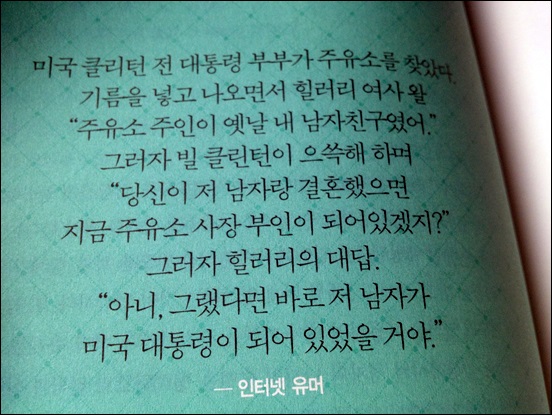 미국 클리턴 전 대통령 부부가 주유소를 찾았다.
기름을 넣고 나오면서 힐러리 여사 왈
“주유소 주인이 옛날 내 남자친구였어.”
그러자 빌 클린턴이 으쓱해 하며
“당신이 저 남자랑 결혼했으면
지금 주유소 사장 부인이 되어있겠지?”
그러자 힐러리의 대답.
“아니, 그랬다면 바로 저 남자가
미국 대통령이 되어 있었을 거야.”
— 인터넷 유머